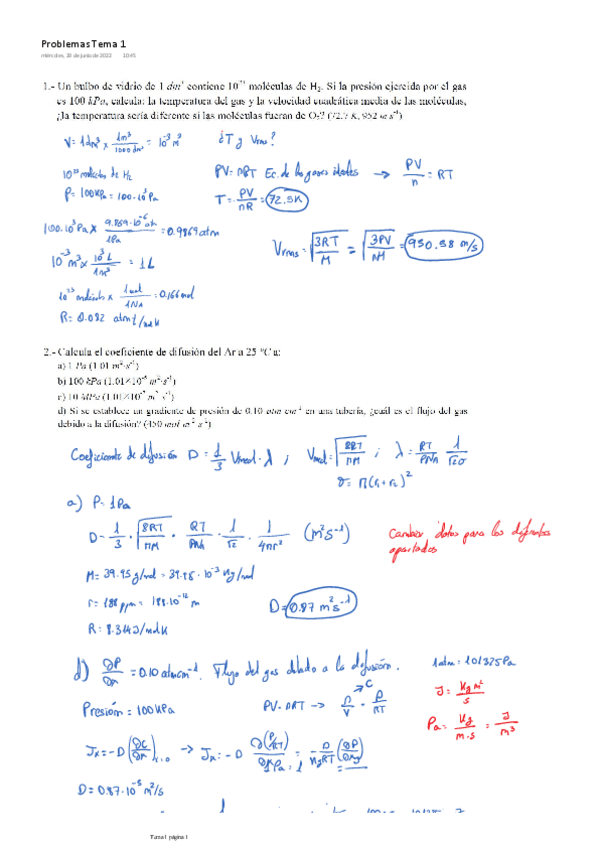 Problemas Tema 1
miércoles, 10 de junio de 2022 10:45
1.- Un bulbo de vidrio de 1 dm³ contiene 10²³ moléculas de H₂. Si la presión ejercida por el gas
es 100 kPa, calcula: la temperatura del gas y la velocidad cuadrática media de las moléculas,
¿la temperatura sería diferente si las moléculas fueran de O₂? (72.7 K, 952 m s⁻¹)
V = 1 dm³ x 1m³/1000 dm³ = 10⁻³ m³
¿T y Vrms?
10²³ moléculas de H₂
P = 100 kPa = 100·10³ Pa
PV = nRT Ec. de los gases ideales → PV/n = RT
T = PV/nR = 72.5K
100·10³ Pa x 9.869·10⁻⁶ atm/1Pa = 0.9869 atm
Vrms = √(3RT/M) = √(3PV/nM) = 950.58 m/s
10⁻³ m³ x 10³ L/1m³ = 1L
10²³ moléculas x 1 mol/1NA = 0.166 mol
R = 0.082 atm l/mol K
2.- Calcula el coeficiente de difusión del Ar a 25 °C a:
a) 1 Pa (1.01 m²·s⁻¹)
b) 100 kPa (1.01×10⁻⁵ m²·s⁻¹)
c) 10 MPa (1.01×10⁻⁷ m²·s⁻¹)
d) Si se establece un gradiente de presión de 0.10 atm cm⁻¹ en una tubería, ¿cuál es el flujo del gas
debido a la difusión?
Coeficiente de difusión D = 1/3 Vmed · λ ; Vmed = √(8RT/πM) ; λ = RT/PNA 1/√2σ
σ = π(r₁+r₂)²
a) P = 1Pa
D = 1/3 · √(8RT/πM) · RT/PNA · 1/√2 · 1/4πr² (m²s⁻¹)
Cambiar datos para los diferentes
apartados
M = 39.95 g/mol = 39.95·10⁻³ Kg/mol
r = 188 ppm = 188·10⁻¹² m
D = 0.87 m²s⁻¹
R = 8.314 J/molK
d) ∂P/∂x = 0.10 atm cm⁻¹. Flujo del gas debido a la difusión.
1 atm = 101325 Pa
Presión = 100 KPa
PV = nRT → n/V = P/RT
C
J = Kg m²/s
Pa = Kg/m·s = J/m³
D = 0.87·10⁻⁵ m²/s
Tema 1 página 1